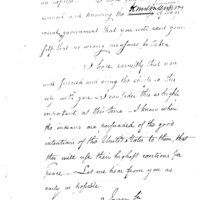 and knowing the
government that you will want your
that no wrong measures be taken
I hope earnestly that you
will succeed and bring the chiefs to this
with you – I consider this as highly
important at this time – I know when
the indians are persuaded of the good
intentions of this United States to them, that
they will use their highest exertions for
peace – Let me hear from you as
early as possible